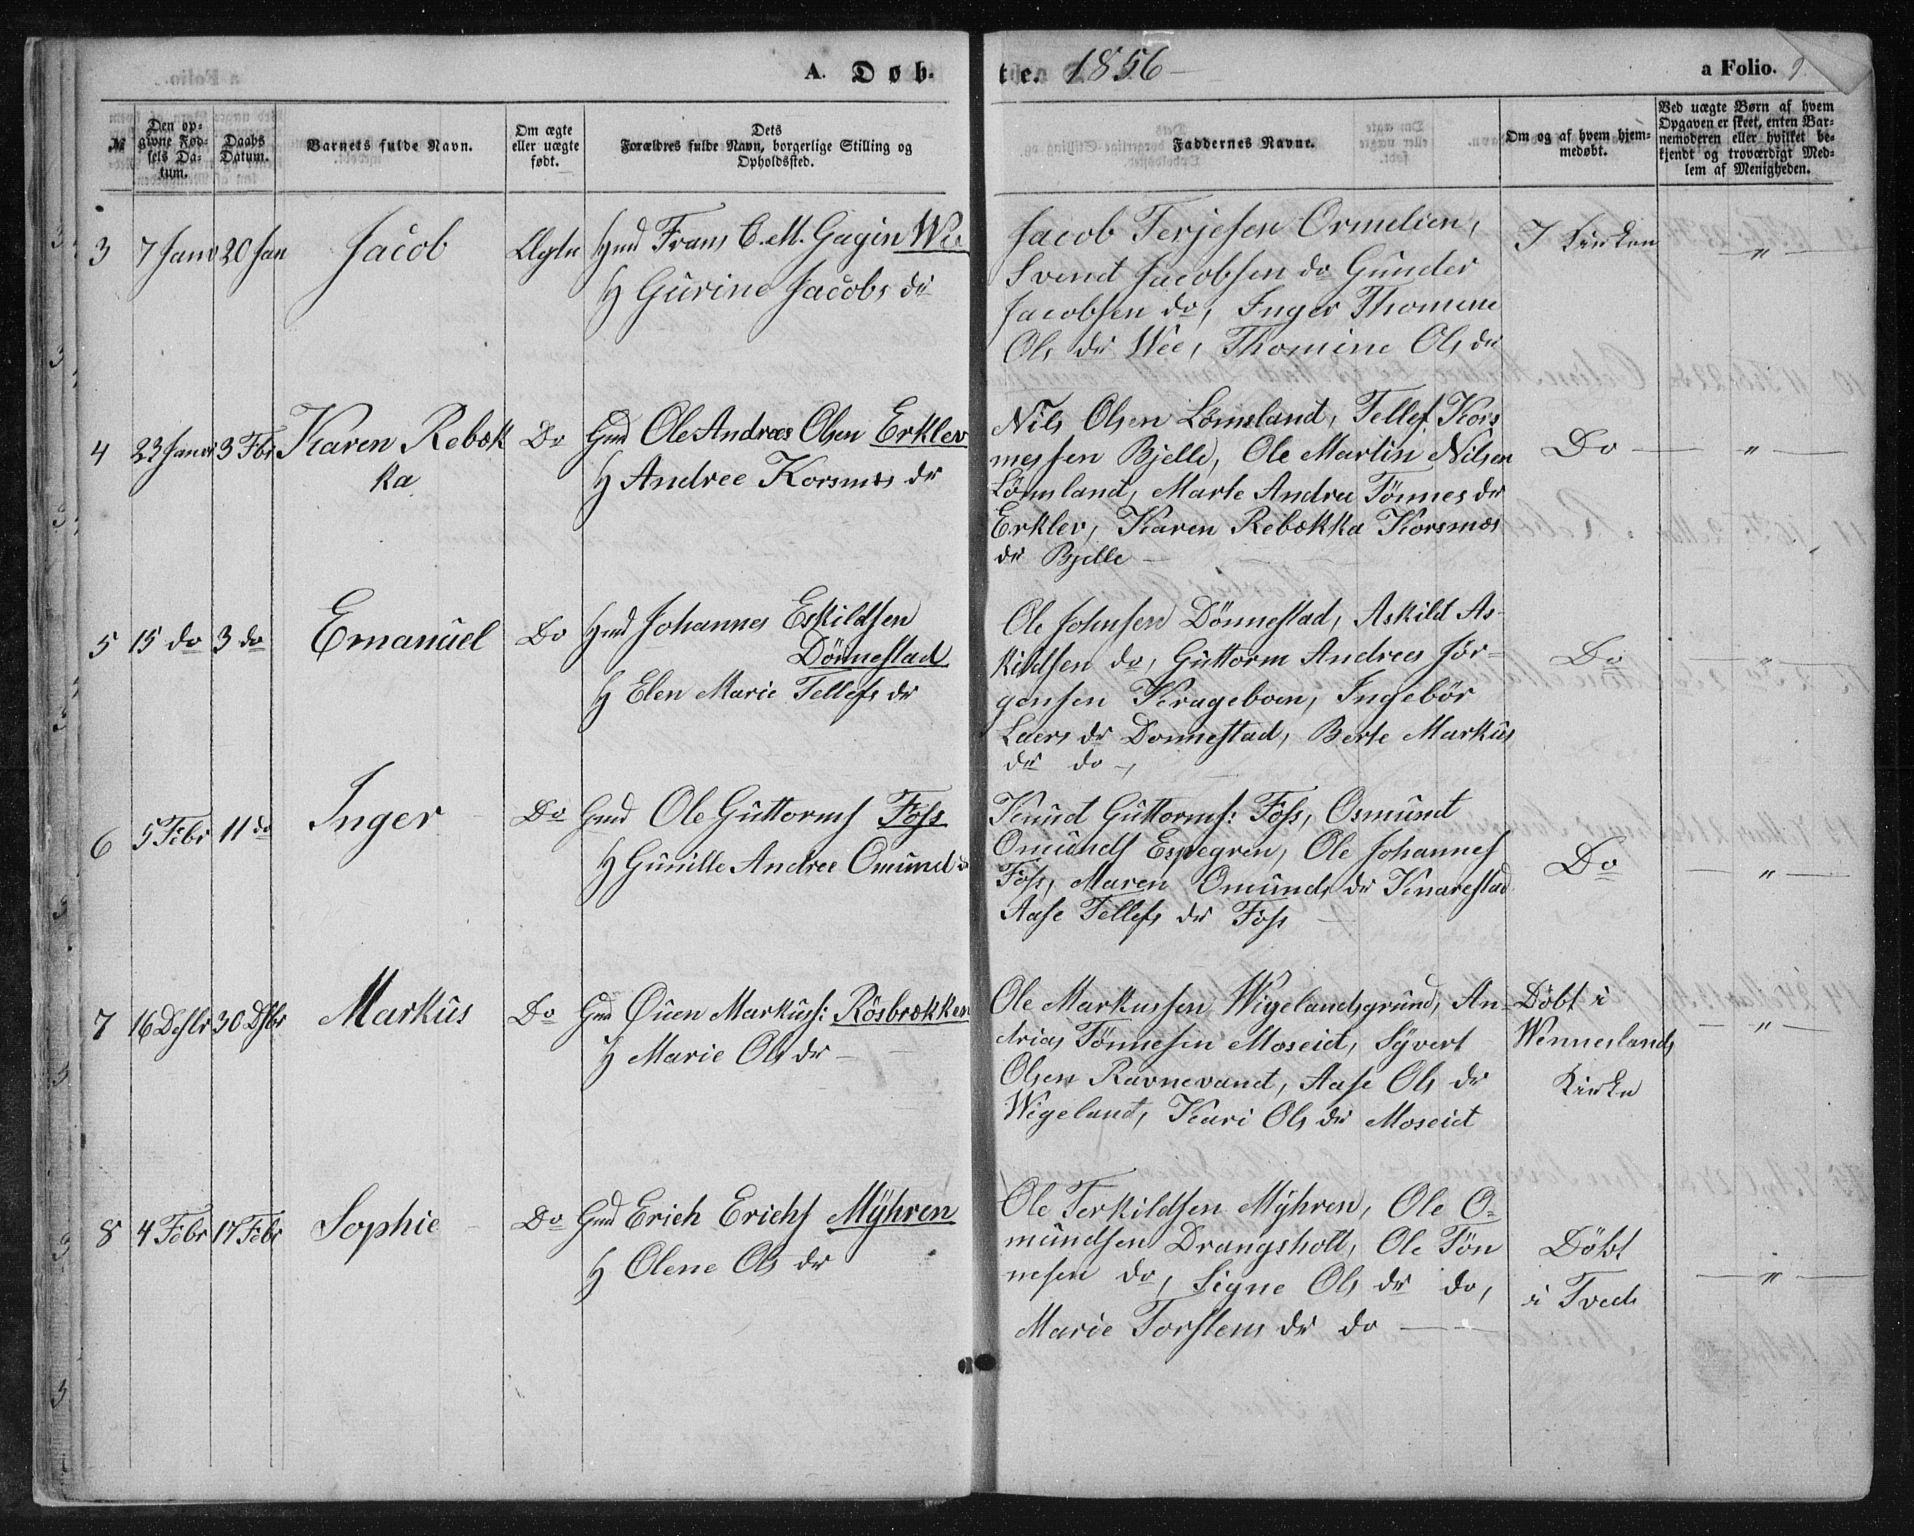 A. Døbte. 1856 –
a Folio. 9
№
Den opgivne Fødsels Datum.
Daabs Datum.
Barnets fulde Navn.
Om ægte eller uægte født.
Dets Forældres fulde Navn, borgerlige Stilling og Opholdssted.
Faddernes Navne.
Om og af hvem hjemmedøbt.
Ved uægte Børn af hvem Opgaven er skeet, enten Barnemoderen eller hvilket bekjendt og troværdigt Medlem af Menigheden.
3 7 Janv 20 Jan Jacob Ægte Gmd Frans C. M. Gagin Wee
H Gurine Jacobs dr
Jacob Terjesen Ormelien,
Svend Jacobsen do Gunder
Jacobsen do, Inger Thomine
Ols dr Wee, Thomine Ols dr
I Kirken — " —
4 23 Janv 3 Fbr Karen Rebæk
ka
Do Gmd Ole Andreas Olsen Erklev
H Andree Korsmæs dr
Nils Olsen Lömsland, Tellef Kors
messen Bjelle, Ole Martin Nilsen
Lömsland, Marte Andrea Tönnes dr
Erklev, Karen Rebækka Korsmæs
dr Bjelle —
Do — " —
5 15 do 3 do Emanuel Do Hmd Johannes Eskildsen
Dönnestad
H Elen Marie Tellefs dr
Ole Johnsen Dönnestad, Askild As-
kildsen do, Guttorm Andreas Jör-
gensen Krageboen, Ingebör
Laers dr Donnestad, Berte Markus
dr do —
Do — " —
6 5 Febr 11 do Inger Do Gmd Ole Guttorms Foss
H Gunille Andrea Omund dr
Knud Guttorms: Foss, Osmund
Omunds Espegren, Ole Johannes
Foss, Maren Omunds dr Knarestad
Aase Tellefs dr Foss —
Do — " —
7 16 Desbr 30 Dsbr Markus Do Gmd Ouen Markuss: Rösbrækken
H Marie Ols dr —
Ole Markussen Wigelandsgrund, An-
drias Tönnesen Moseid, Syvert
Olsen Ravnevand, Aase Ols dr
Wigeland, Kari Ols dr Moseid
Döbt i
Wenneslands
Kirke
— " —
8 4 Febr 17 Febr Sophie Do Gmd Erich Erichs Mÿhren
H Olene Ols dr
Ole Terkildsen Mÿhren, Ole O-
mundsen Drangsholt, Ole Tön
nesen do, Signe Ols dr do,
Marie Torstens dr do —
Döbt
i Tveds
— " —